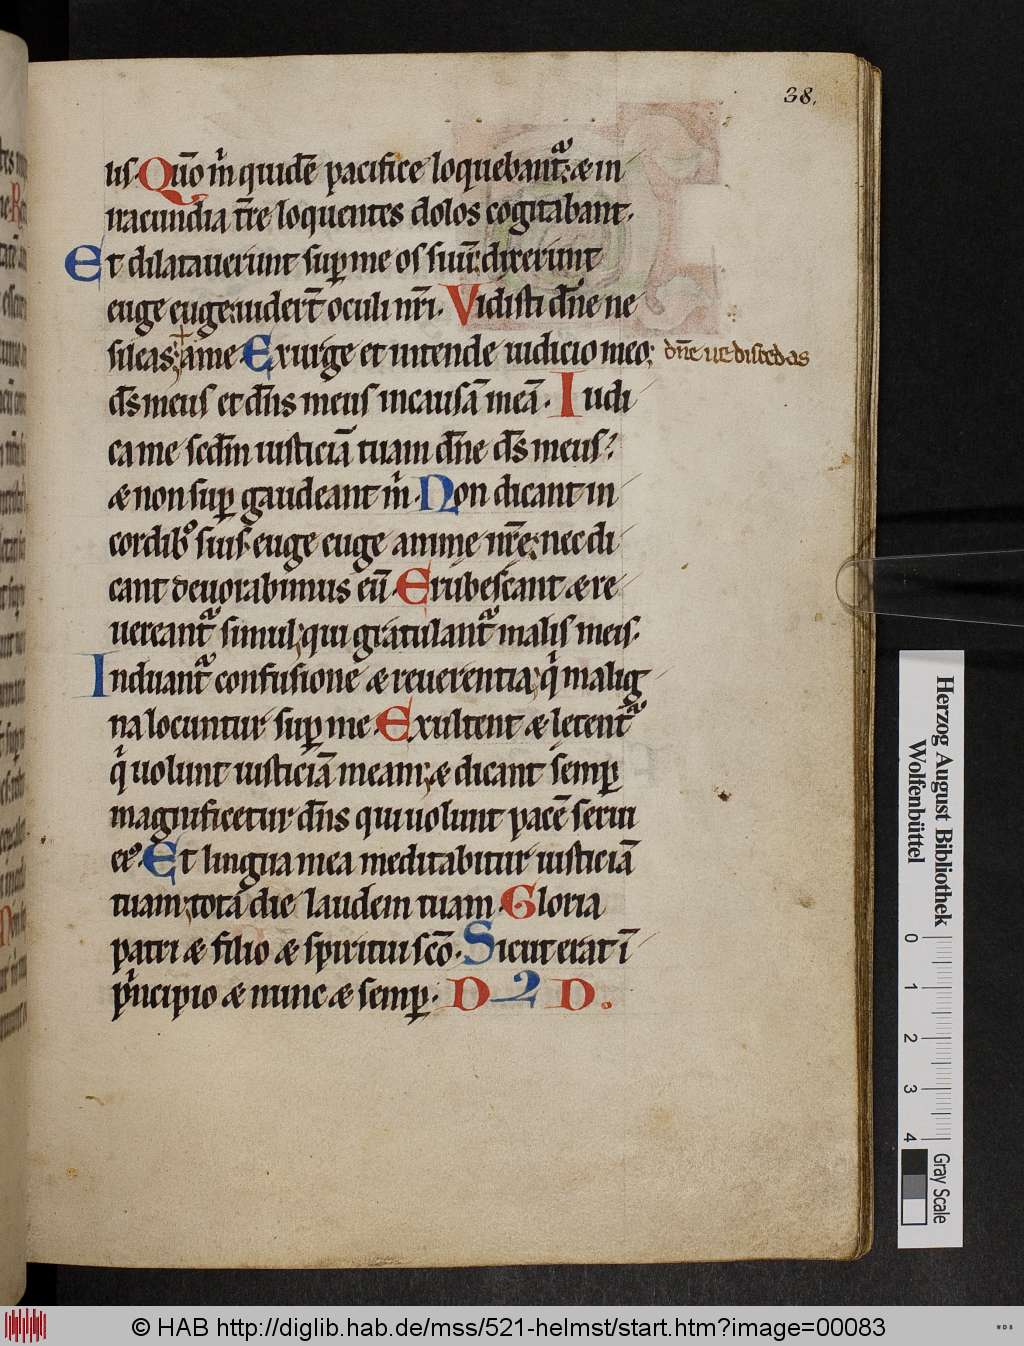 38.
lis. Quō m̄ quidē pacifice loquebant̃: & in
iracundia t̄re loquentes dolos cogitabant.
Et dilatauerunt sup me os suū: dixerunt
euge euge: uidert̄ oculi nr̄i. Vidisti dn̄e ne
sileas; a me. Exurge et intende iudicio meo: dn̄e ne discedas
ds̄ meus et dn̄s meus in causā meā. Iudi
ca me sedm̄ iusticiā tuam dn̄e ds̄ meus:
& non sup gaudeant m̄. Non dicant in
cordibꝰ suis. euge euge anime nr̄e: nec di
cant deuorabimus eū. Erubescant & re
uereant̃ simul; qui gratulant̃ malis meis.
Induant̃ confusione & reuerentia; q̄ malig
na locuntur sup me. Exultent & letent̃
q̄ uolunt iusticiā meam; & dicant semp
magnificetur dn̄s qui uolunt pacē serui
eiꝰ. Et lingua mea meditabitur iusticiā
tuam; tota die laudem tuam. Gloria
patri & filio & spiritui sc̄o. Sicut erat ī
p̄ncipio & nunc & semp.
Herzog August Bibliothek
Wolfenbüttel
0 1 2 3 4
Gray Scale
© HAB http://diglib.hab.de/mss/521-helmst/start.htm?image=00083